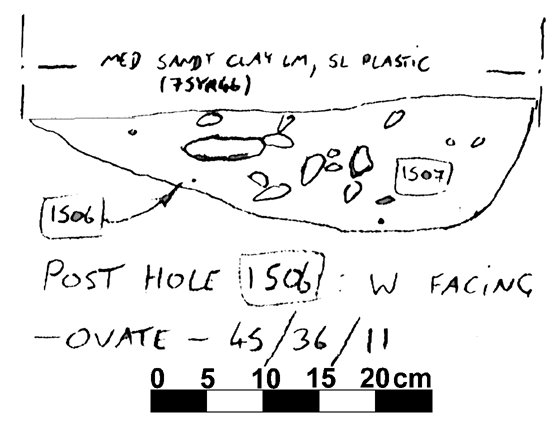 MED SANDY CLAY LM, SL PLASTIC
(7SYR46)
1506
1507
POST HOLE 1506 : W FACING
- OVATE - 45/36/11
0 5 10 15 20 cm